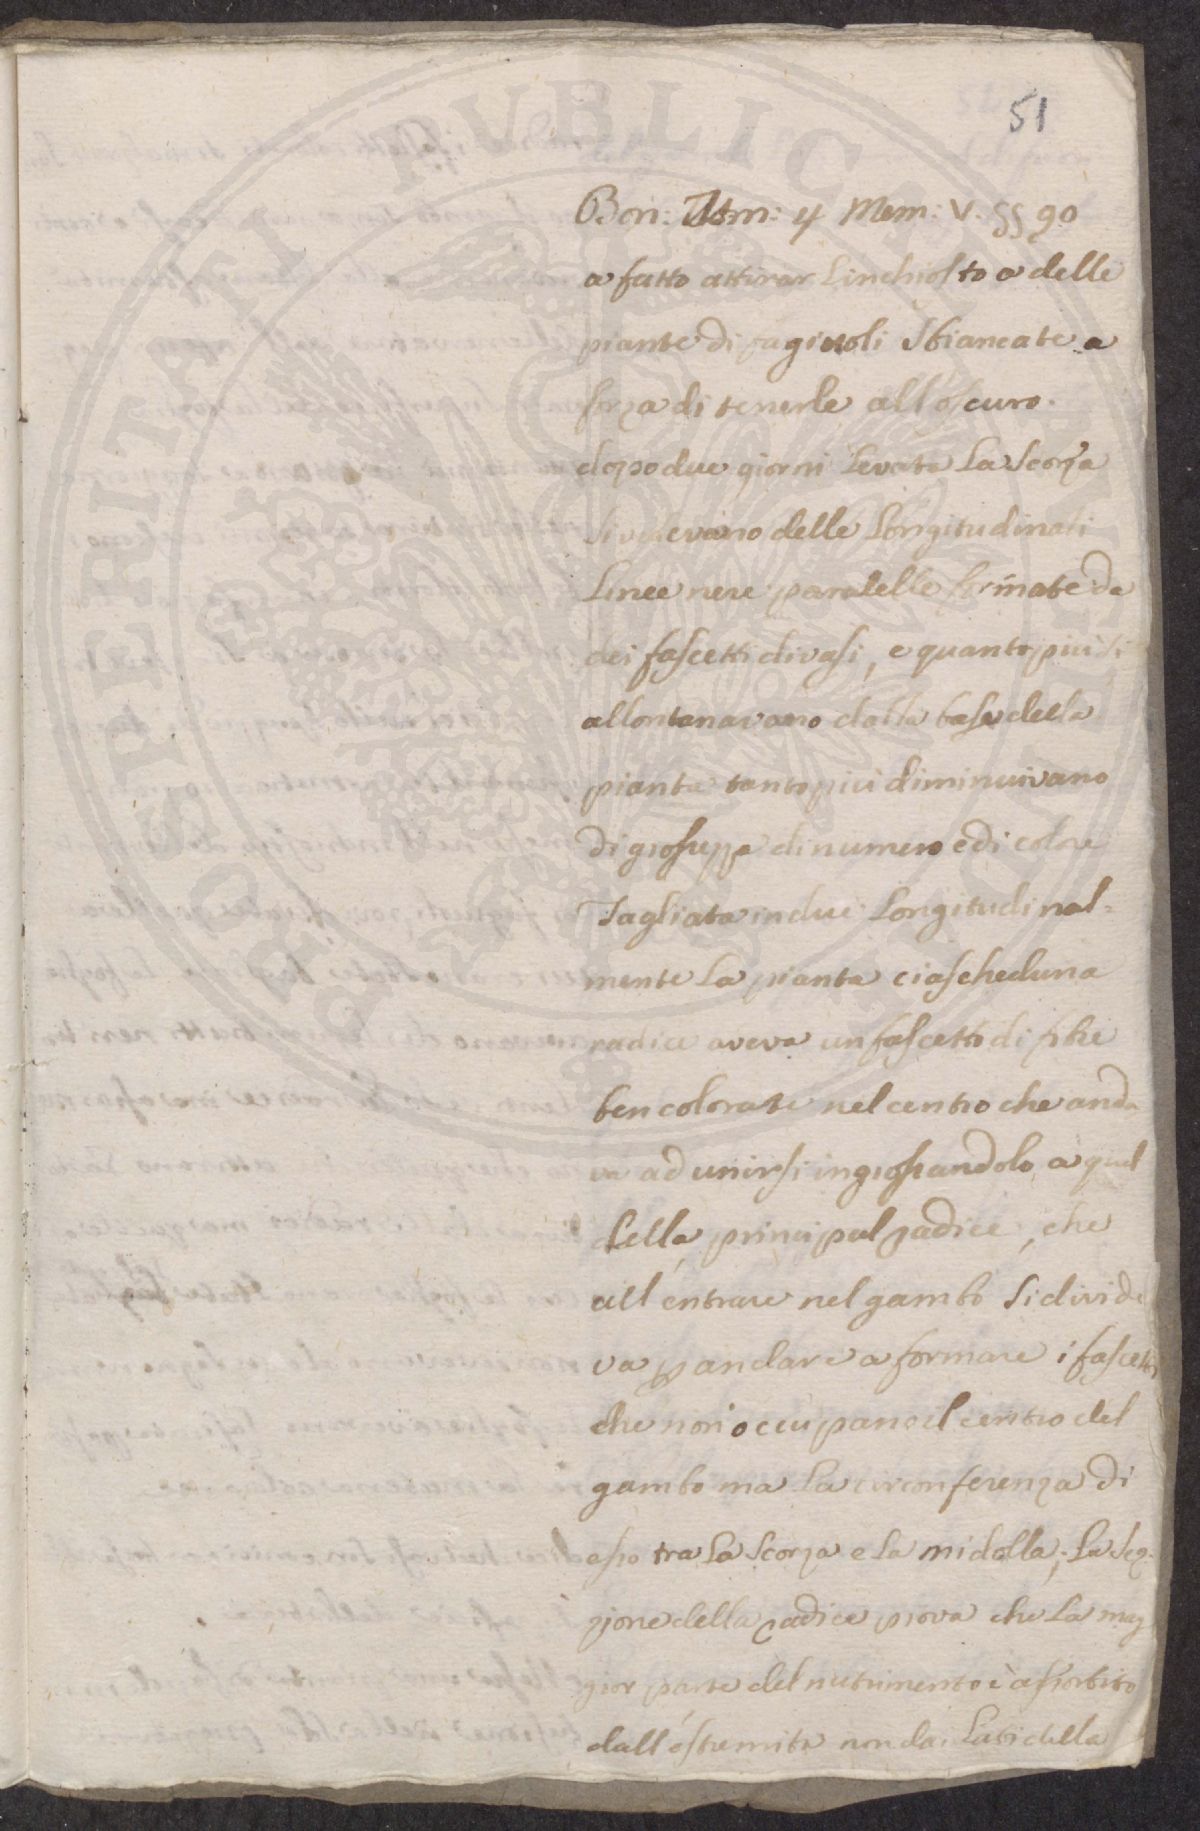 51
Bon: Mem: V. §§ 90
a fatto attirar L'inchiosto a delle
piante di fagiuoli Sbiancate a
forza di tenerle all'oscuro.
dopo due giorni Levata La Scorza
si vedevano delle Longitudinali
Linee nere paralelle formate da
dei fascetti di vasi, e quanto più si
allontanavano dalla base della
pianta tanto più diminuivano
di grossezza di numero e di colore
Tagliata in due Longitudinal=
mente La pianta ciascheduna
radice aveva un fascetto di fibre
ben colorate nel centro che anda
va ad unirsi ingrossandolo a quel
della principal radice, che
all'entrare nel gambo Si divide
va p andare a formare i fascetti
che non occupano il centro del
gambo ma La circonferenza di
esso tra La Scorza e La midolla; La Sez=
zione della radice prova che La mag
gior parte del nutrimento è assorbito
dall'estremità non dai Lati della
PROSPERITATI PVBLICAE